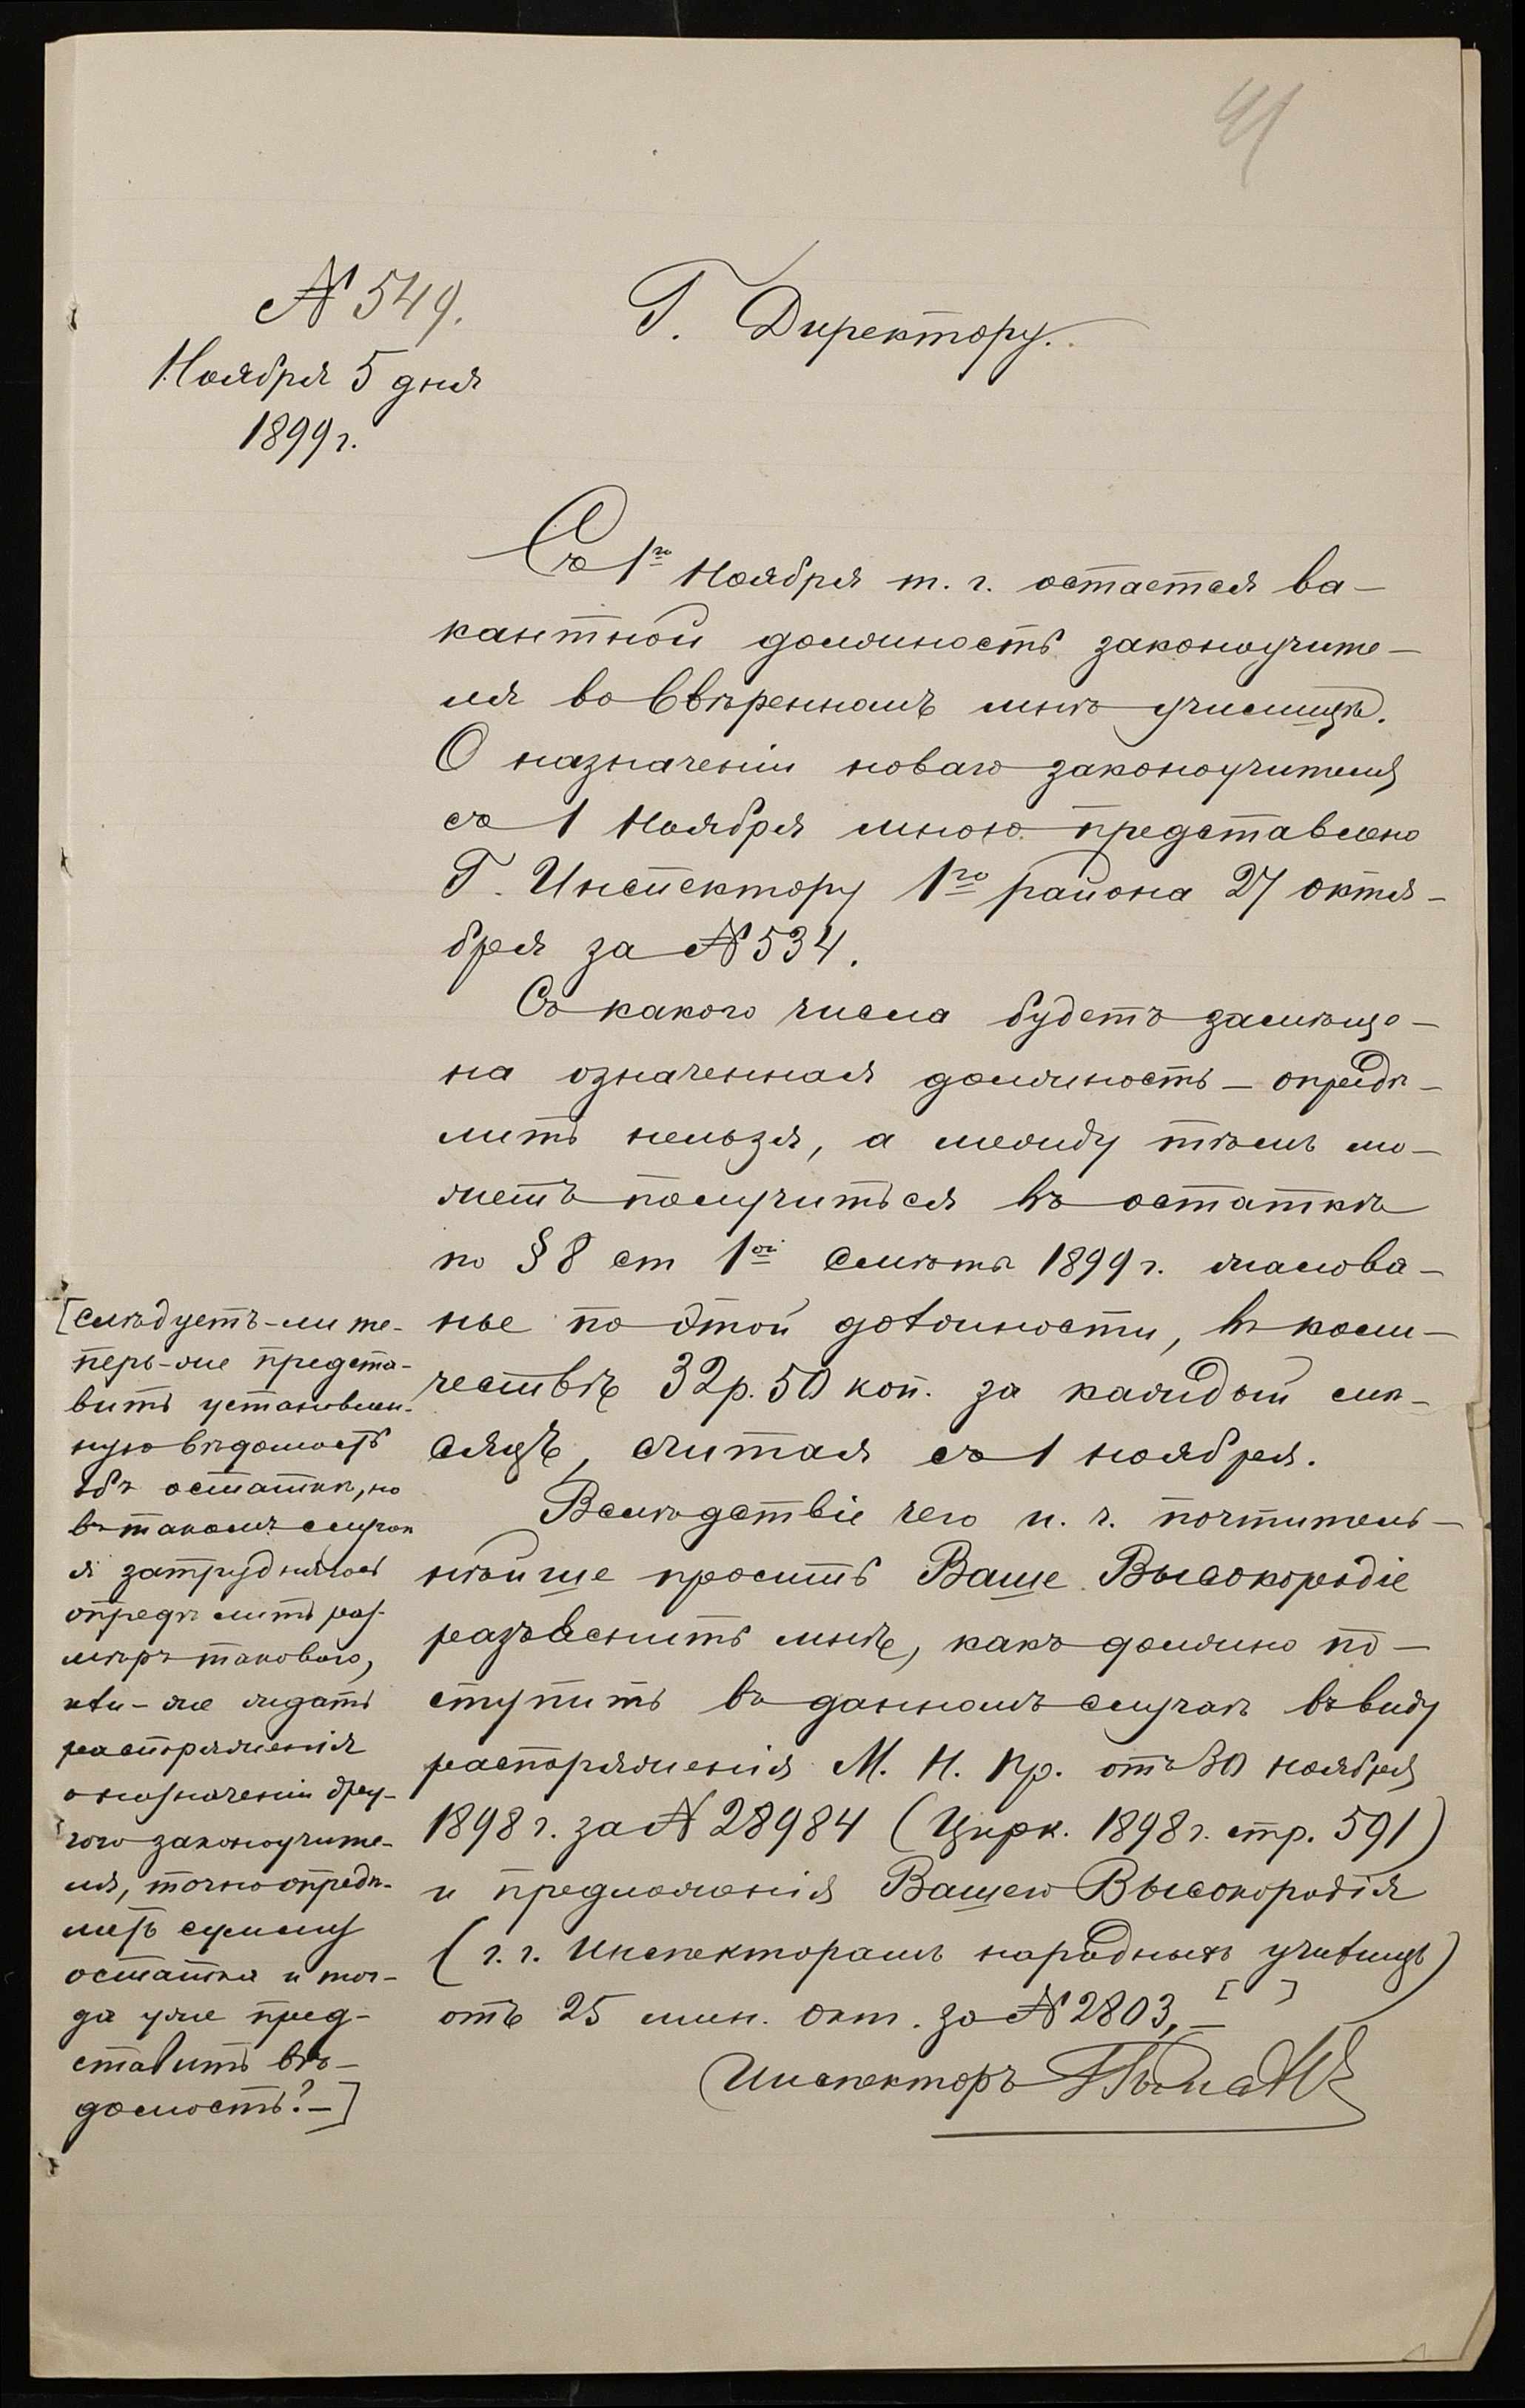 41
№ 549.
Ноября 5 дня
1899 г.
Г. Директору.
Съ 1го Ноября т. г. остается ва-
кантной должность законоучите-
ля во ввѣренномъ мнѣ училищѣ.
О назначеніи новаго законоучителя
съ 1 Ноября мною представлено
Г. Инспектору 1го района 27 октя-
бря за № 534.
Съ какого числа будетъ замѣще-
на означенная должность – опредѣ-
лить нельзя, а между тѣмъ мо-
жетъ получиться въ остаткѣ
по § 8 ст 1ой Смѣты 1899 г. жалова-
нье по этой должности, въ коли-
чествѣ 32 р. 50 коп. за каждый мѣ-
сяцъ, считая съ 1 ноября.
Вслѣдствіе чего и. ч. почтитель-
нѣйше просить Ваше Высокородіе
разъяснить мнѣ, какъ должно по-
ступить въ данномъ случаѣ въ виду
распоряженія М. Н. Пр. отъ 30 ноября
1898 г. за № 28984 (Цирк. 1898 г. стр. 591)
и предложенія Вашего Высокородія
(г. г. Инспекторамъ народныхъ училищъ)
отъ 25 мин. окт. за № 2803, – [ ]
Инспекторъ
[слѣдуетъ-ли те-
перь-же предста-
вить установлен-
ную вѣдомость
объ остаткѣ, но
въ такомъ случаѣ
я затрудняюсь
опредѣлить раз-
мѣръ таковаго,
или-же ждать
распоряженія
о назначеніи дру-
гого законоучите-
ля, точно опредѣ-
лить сумму
остатка и тог-
да уже пред-
ставить вѣ-
домость? –]